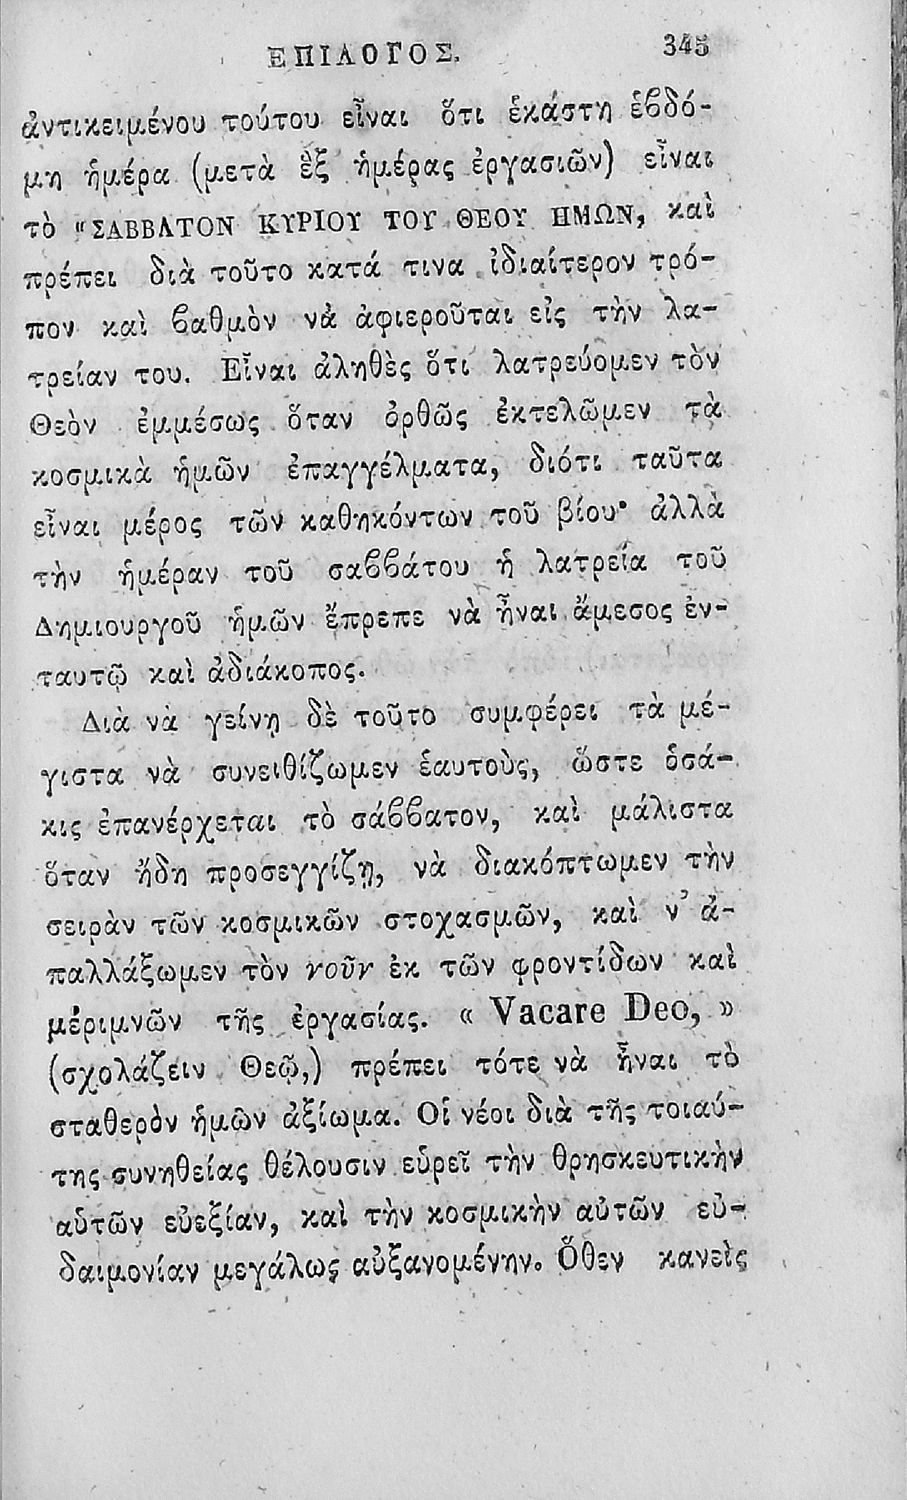 ΕΠΙΛΟΓΟΣ. 345
ἀντικειμένου τούτου εἶναι ὅτι ἑκάστη ἑβδό-
μη ἡμέρα (μετὰ ἓξ ἡμέρας ἐργασιῶν) εἶναι
τὸ "ΣΑΒΒΑΤΟΝ ΚΥΡΙΟΥ ΤΟΥ ΘΕΟΥ ΗΜΩΝ, καὶ
πρέπει διὰ τοῦτο κατά τινα ἰδιαίτερον τρό-
πον καὶ ϐαθμὸν νὰ ἀφιεροῦται εἰς τὴν λα-
τρείαν του. Εἶναι ἀληθὲς ὅτι λατρεύομεν τὸν
Θεὸν ἐμμέσως ὅταν ὀρθῶς ἐκτελῶμεν τὰ
κοσμικὰ ἡμῶν ἐπαγγέλματα, διότι ταῦτα
εἶναι μέρος τῶν καθηκόντων τοῦ βίου· ἀλλὰ
τὴν ἡμέραν τοῦ σαϐϐάτου ἡ λατρεία τοῦ
Δημιουργοῦ ἡμῶν ἔπρεπε νὰ ἦναι ἄμεσος ἐν-
ταυτῷ καὶ ἀδιάκοπος.
Διὰ νὰ γείνῃ δὲ τοῦτο συμφέρει τὰ μέ-
γιστα νὰ συνειθίζωμεν ἑαυτοὺς, ὥστε ὁσά-
κις ἐπανέρχεται τὸ σάϐϐατον, καὶ μάλιστα
ὅταν ἤδη προσεγγίζῃ, νὰ διακόπτωμεν τὴν
σειρὰν τῶν κοσμικῶν στοχασμῶν, καὶ ν' ἀ-
παλλάξωμεν τὸν νοῦν ἐκ τῶν φροντίδων καὶ
μεριμνῶν τῆς ἐργασίας. « Vacare Deo, »
(σχολάζειν Θεῷ,) πρέπει τότε νὰ ἦναι τὸ
σταθερὸν ἡμῶν ἀξίωμα. Οἱ νέοι διὰ τῆς τοιαύ-
της συνηθείας θέλουσιν εὑρεῖ τὴν θρησκευτικὴν
αὑτῶν εὐεξίαν, καὶ τὴν κοσμικὴν αὑτῶν εὐ-
δαιμονίαν μεγάλως αὐξανομένην. Ὅθεν κανεὶς